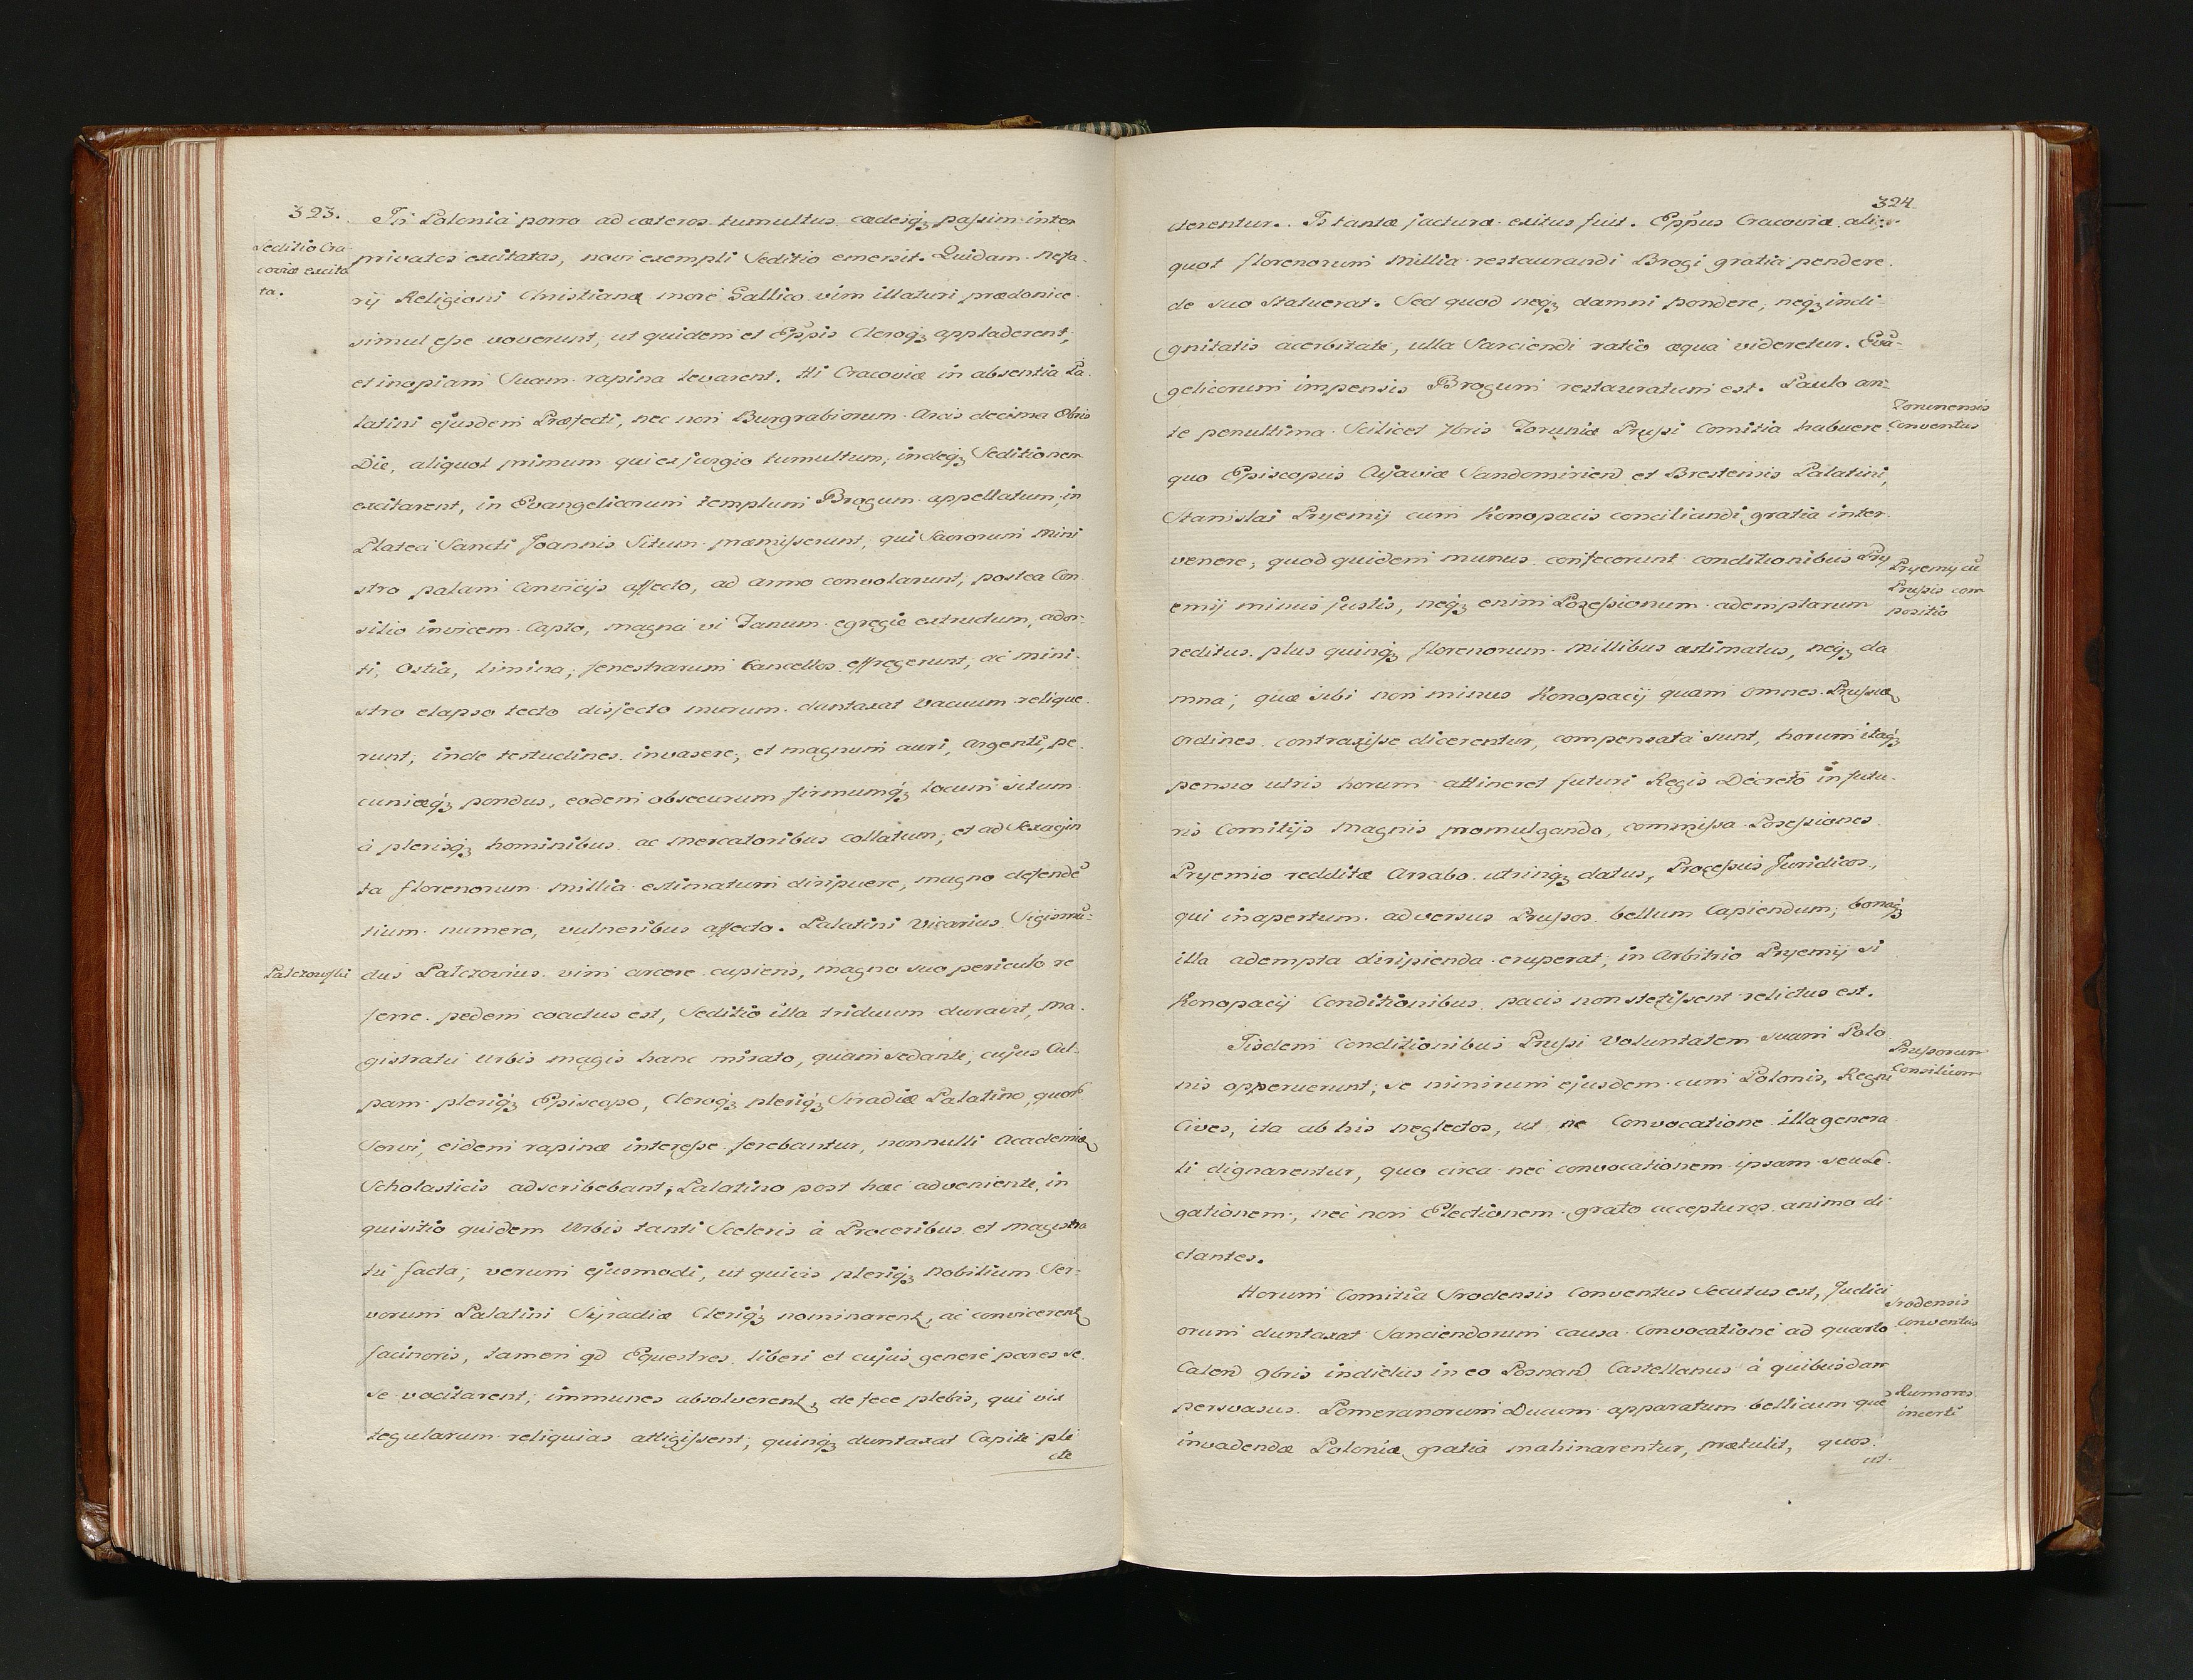 323.
Seditio Cra-
coviæ excita
ta.
In Polonia porro ad cæteros tumultus cædesq3 passim inter
privatos excitatas, novi exempli Seditio emersit. Quidam nefa-
rij Religioni Christianæ more Gallico vim illaturi prædonice
simul esse voverunt, ut quidem et Eppis Cleroq3 appladerent,
et inopiam Suam rapina levarent. Hi Cracoviæ in absentia Pa-
latini ejusdem Præfecti, nec non Burgrabiorum Arcis decima Obris
Die, aliquot primum qui ex jurgio tumultum, indeq3 Seditionem
excitarent, in Evangelicorum templum Brogum appellatum, in
Platea Sancti Joannis Situm præmisserunt, qui Sacrorum Mini
stro palam Convicijs affecto, ad arma convolarunt, postea Con
silio invicem Capto, magna vi Fanum egregie extructum, ador-
ti, Ostia, limina, fenestrarum Cancellos effregerunt, ac mini-
stro elapso tecto disjecto murum duntaxat Vacuum relique
runt, inde testudines invasere, et magnum auri, argenti, pe
cuniæq3 pondus, eodem obsecurum firmumq3 locum situm
à plerisq3 hominibus ac Mercatoribus collatum, et ad Sexagin
ta florenorum Millia estimatum diripuere, magno defendē
tium numero, vulneribus affecto. Palatini Vicarius Sigismū-
Palczowski
dus Palczovius vim arcere cupiens, magno suo periculo re
ferre pedem coactus est, Seditio illa triduum duravit, Ma-
gistratu Urbis magis hanc mirato, quam sedante, cujus Cul-
pam pleriq3 Episcopo, Cleroq3 pleriq3 Siradiæ Palatino, quor
Servi, eidem rapinæ interesse ferebantur, nonnulli Academiæ
Scholasticis adscribebant, Palatino post hæc adveniente, in
quisitio quidem Urbis tanti Sceleris à Proceribus et Magistra
tu facta, verum ejusmodi, ut quicis pleriq3 Nobilium Ser-
vorum Palatini Syradiæ Cleriq3 nominarent, ac convicerent
facinoris, tamen qd Equestres liberi et cujus genere pares se
se vocitarent, immunes absolverent, de fece plebis, qui vix
tegularum reliquias attigissent, quinq3 duntaxat Capite ple
cte
324
cterentur. Is tantæ jacturæ exitus fuit. Eppus Cracoviæ ali-
quot florenorum Millia restaurandi Brogi gratia pendere
de suo Statuerat. Sed quod neq3 damni pondere, neq3 indi
gnitatis acerbitate, ulla Sarciendi ratio æqua videretur. Evā-
gelicorum impensis Brogum restauratum est. Paulo an-
te penultima Scilicet 7bris Toruniæ Prussi Comitia habuere
Torunensis
Conventus
quo Episcopus Cujaviæ Sandomirien et Brestensis Palatini,
Stanislai Pryemij cum Konopacis conciliandi gratia inter
venere, quod quidem munus confecerunt conditionibus Pry
emij minus justis, neq3 enim Possessionum ademptarum
Pryemy cū
Prussis com
positio
reditus plus quinq3 florenorum Millibus æstimatus, neq3 da
mna, quæ sibi non minus Konopacij quam omnes Prussiæ
ordines contraxisse dicerentur, compensata sunt, horum itaq3
pensio utris horum attineret futuri Regis Decreto in futu-
ris Comitijs Magnis promulgando, commissa Possessiones
Pryemio redditæ Arrabo utrinq3 datus, Processus Juridicos,
qui in apertum adversus Prussos bellum Capiendum, bonaq3
illa adempta diripienda eruperat, in Arbitrio Pryemij si
Konopacij Conditionibus pacis non stetissent relictus est.
Iisdem Conditionibus Prussi Voluntatem suam Polo
Prussorum
Consilium
nis apperuerunt, se nimirum ejusdem cum Polonis, Regni
Cives, ita ab his neglectos, ut ne Convocatione illa genera
li dignarentur, quo circa nec convocationem ipsam seu Le-
gationem, nec non Electionem grato accepturos animo di
ctantes.
Horum Comitia Srodensis Conventus Secutus est, Judici
Srodensis
Conventus
orum duntaxat Sanciendorum causa Convocatione ad quarto
Calend 9bris indictus in eo Posnan Castellanus à quibusdam
persvasus Pomeranorum Ducum apparatum bellicum quē
Rumores
incerti
invadendæ Poloniæ gratia mahinarentur, prætulit, quos
ut